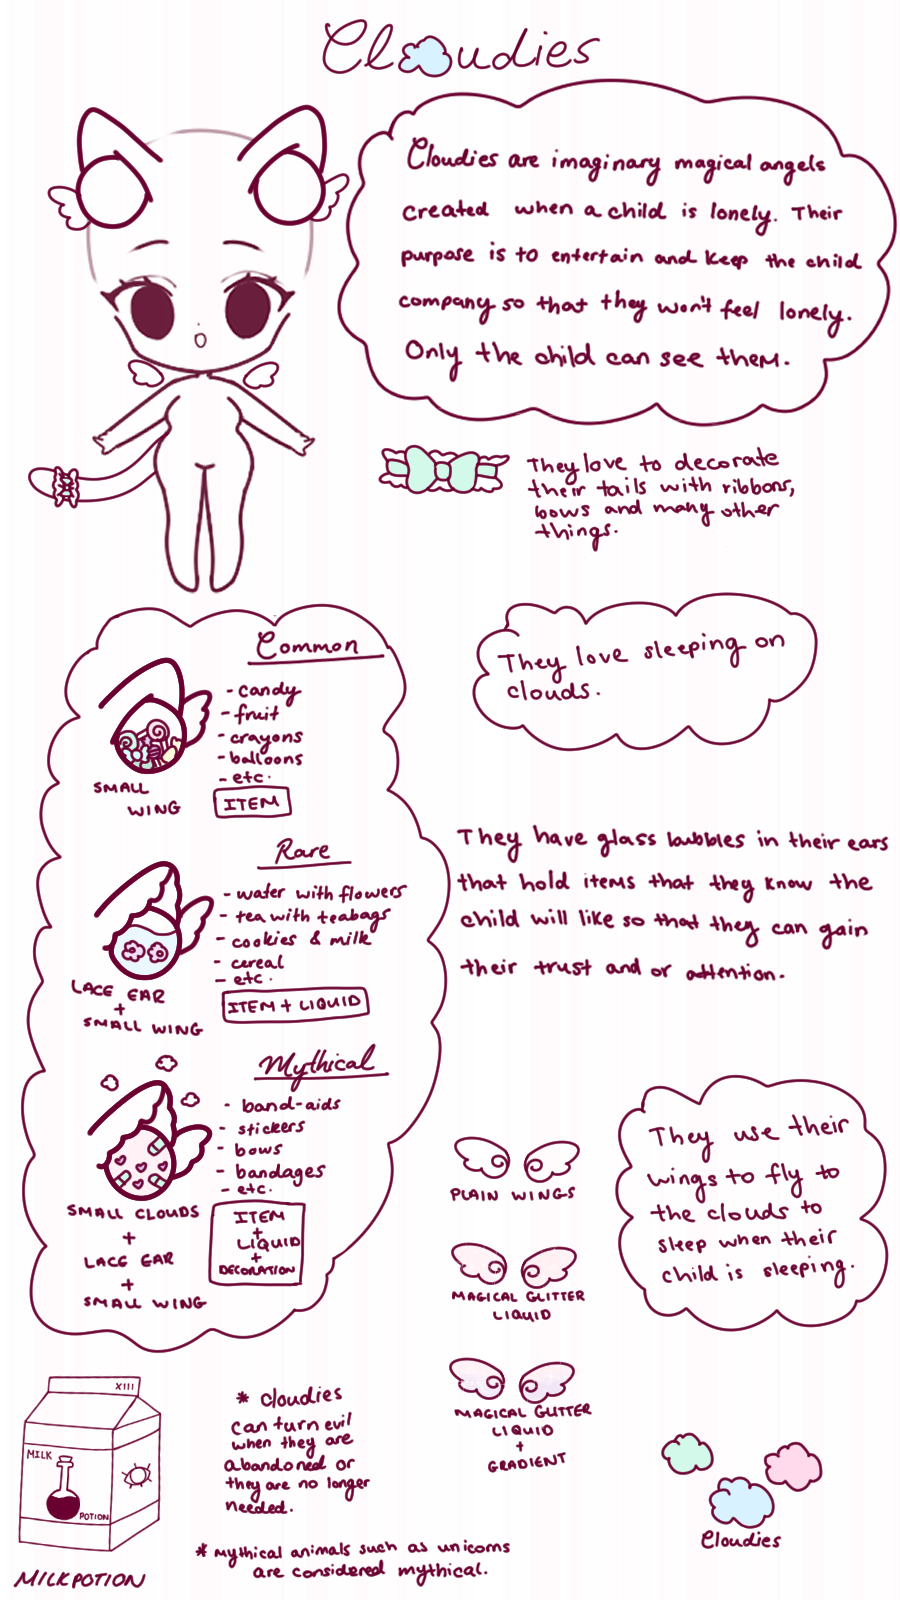 Cloudies
Cloudies are imaginary magical angels
created when a child is lonely. Their
purpose is to entertain and keep the child
company so that they won't feel lonely.
Only the child can see them.
They love to decorate
their tails with ribbons,
bows and many other
things.
They love sleeping on
clouds.
Common
- candy
- fruit
- crayons
- balloons
- etc.
ITEM
SMALL
WING
Rare
- water with flowers
- tea with teabags
- cookies & milk
- cereal
- etc.
ITEM + LIQUID
LACE EAR
+
SMALL WING
Mythical
- band-aids
- stickers
- bows
- bandages
- etc.
ITEM
+
LIQUID
+
DECORATION
SMALL CLOUDS
+
LACE EAR
+
SMALL WING
They have glass bubbles in their ears
that hold items that they know the
child will like so that they can gain
their trust and or attention.
They use their
wings to fly to
the clouds to
sleep when their
child is sleeping.
PLAIN WINGS
MAGICAL GLITTER
LIQUID
MAGICAL GLITTER
LIQUID
+
GRADIENT
XIII
MILK
POTION
MILKPOTION
* Cloudies
can turn evil
when they are
abandoned or
they are no longer
needed.
* Mythical animals such as unicorns
are considered mythical.
Cloudies